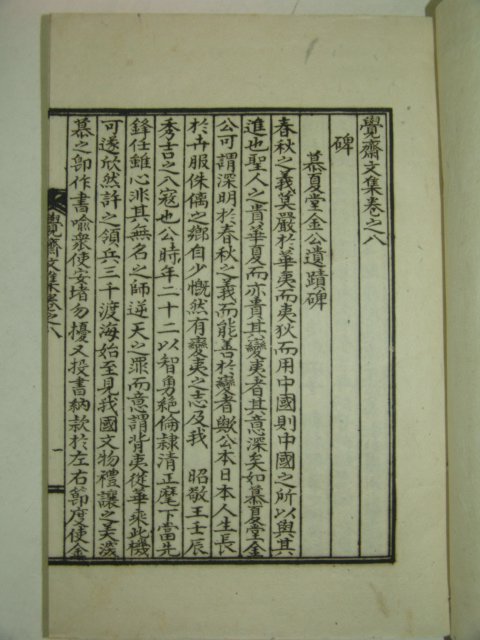 覺齋文集卷之八
碑
慕夏堂金公遺蹟碑
春秋之義莫嚴於華夷而夷狄而用中國則中國之所以與其
進也聖人之貴華夏而亦貴其變夷者其意深矣如慕夏堂金
公可謂深明於春秋之義而能善於變者歟公本日本人生長
於卉服侏𠌯之鄕自少慨然有變夷之志及我 昭敬王壬辰
秀吉之入寇也公時年二十二以智勇絶倫隷淸正麾下當先
鋒任雖心非其無名之師逆天之罪而意謂背夷從華乘此機
可遂欣然許之領兵三千渡海始至見我國文物禮讓之美深
慕之卽作書喩衆使安堵勿擾又投書納款於左右節度使金
覺齋文集卷之八
一